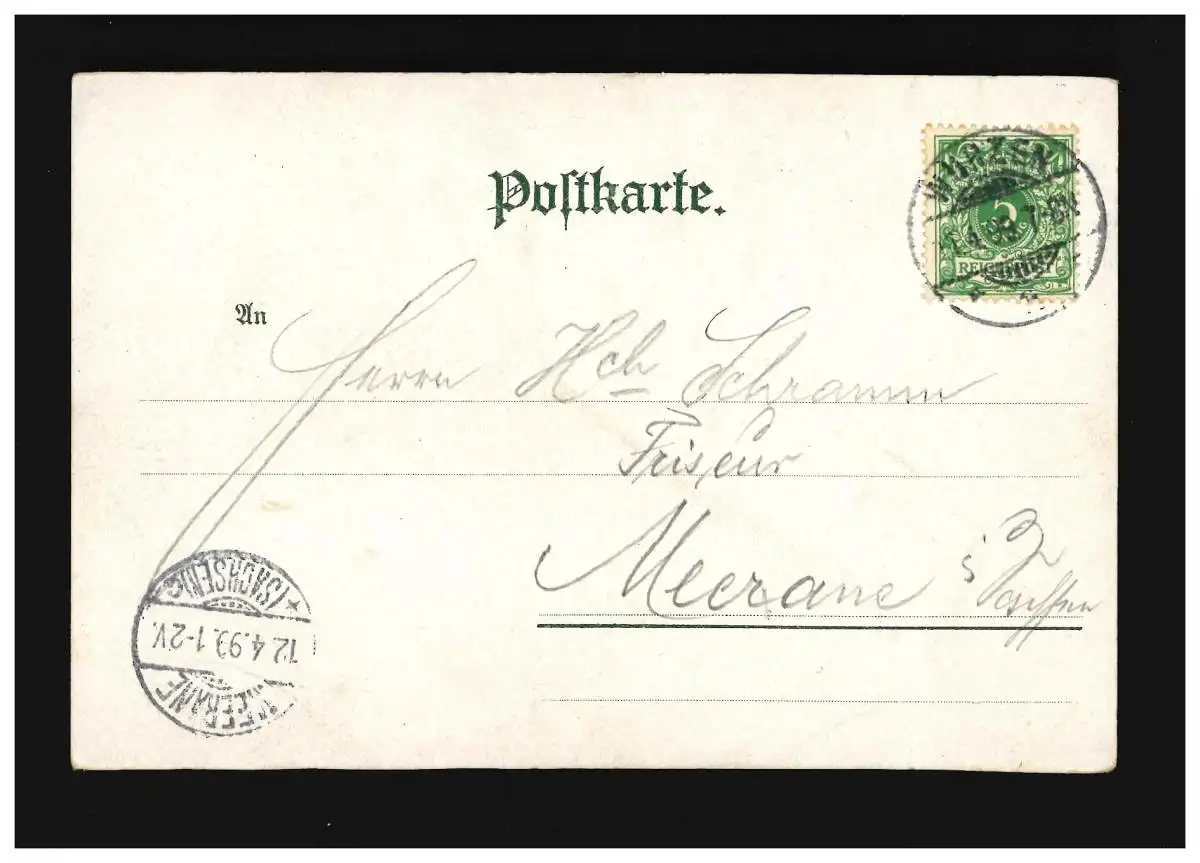 Postkarte.
WURZEN
5
An
Herrn Hch Schramm
Friseur
Meerane i Sachsen
MEERANE
12.4.99. 1-2V.
(SACHSEN)